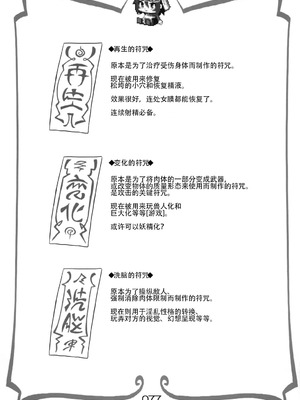 ◆再生的符咒◆
原本是为了治疗受伤身体而制作的符咒。
现在被用来修复
松垮的小穴和恢复精液。
效果很好。连处女膜都能恢复了。
连续射精必备。
再生
◆变化的符咒◆
原本是为了将肉体的一部分变成武器，
或改变物体的质量形态来使用而制作的符咒。
是攻击的关键符咒。
现在被用来玩兽人化和
巨大化等等[游戏]。
或许可以妖精化?
变化
◆洗脑的符咒◆
原本为了操纵敌人、
强制消除肉体限制而制作的符咒。
现在则用于淫乱性格的转换、
玩弄对方的视觉、幻想呈现等等。
洗脳
077